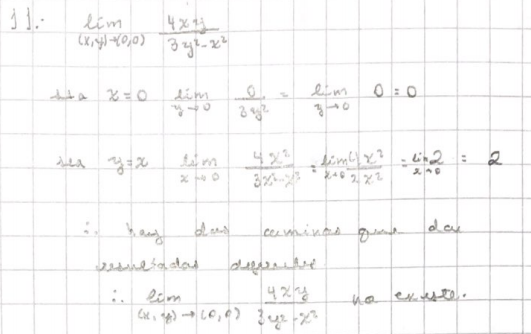 11.- lim (x,y)→(0,0) 4xy / 3y²-x²
sea x=0 lim y→0 0/3y² = lim y→0 0 = 0
sea y=x lim x→0 4x²/3x²-x² = lim x→0 4x²/2x² = lim x→0 2 = 2
∴ hay dos caminos que dan
resultados diferente
∴ lim (x,y)→(0,0) 4xy / 3y²-x² no existe.